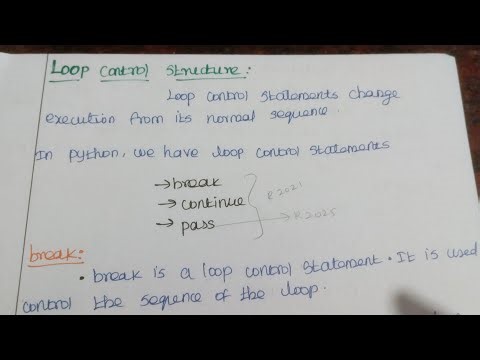 Loop Control Structure:
Loop control statements change
execution from its normal sequence.
In python, we have loop control statements
→ break
→ continue
R2021
→ pass → R2025
break:
• break is a loop control statement. It is used
control the sequence of the loop.